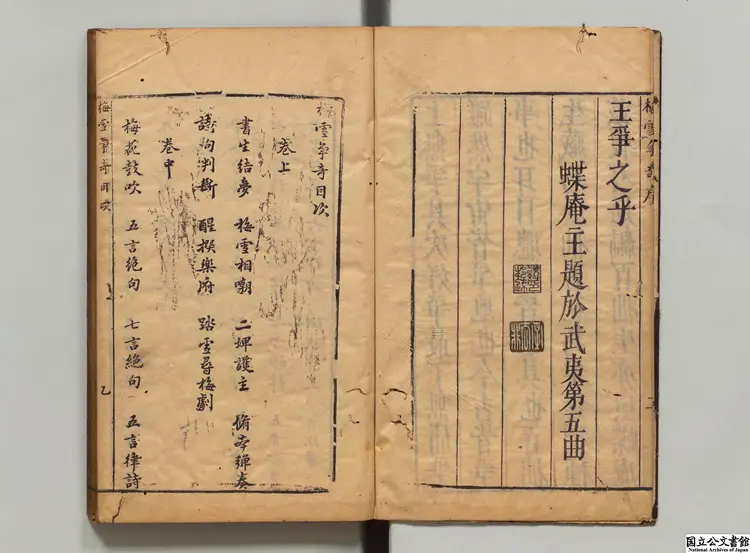 梅雪爭奇序
王爭之乎
蝶庵主題於武夷第五曲
梅雪爭奇目次
卷上
書生結夢　梅雪相嘲　二婢護主　脩本彈奏
詩詞判斷　醒撰樂府　踏雪尋梅劇
卷中
梅花鼓吹　五言絕句　七言絕句　五言律詩
梅雪爭奇目次
乙
国立公文書館
National Archives of Japan